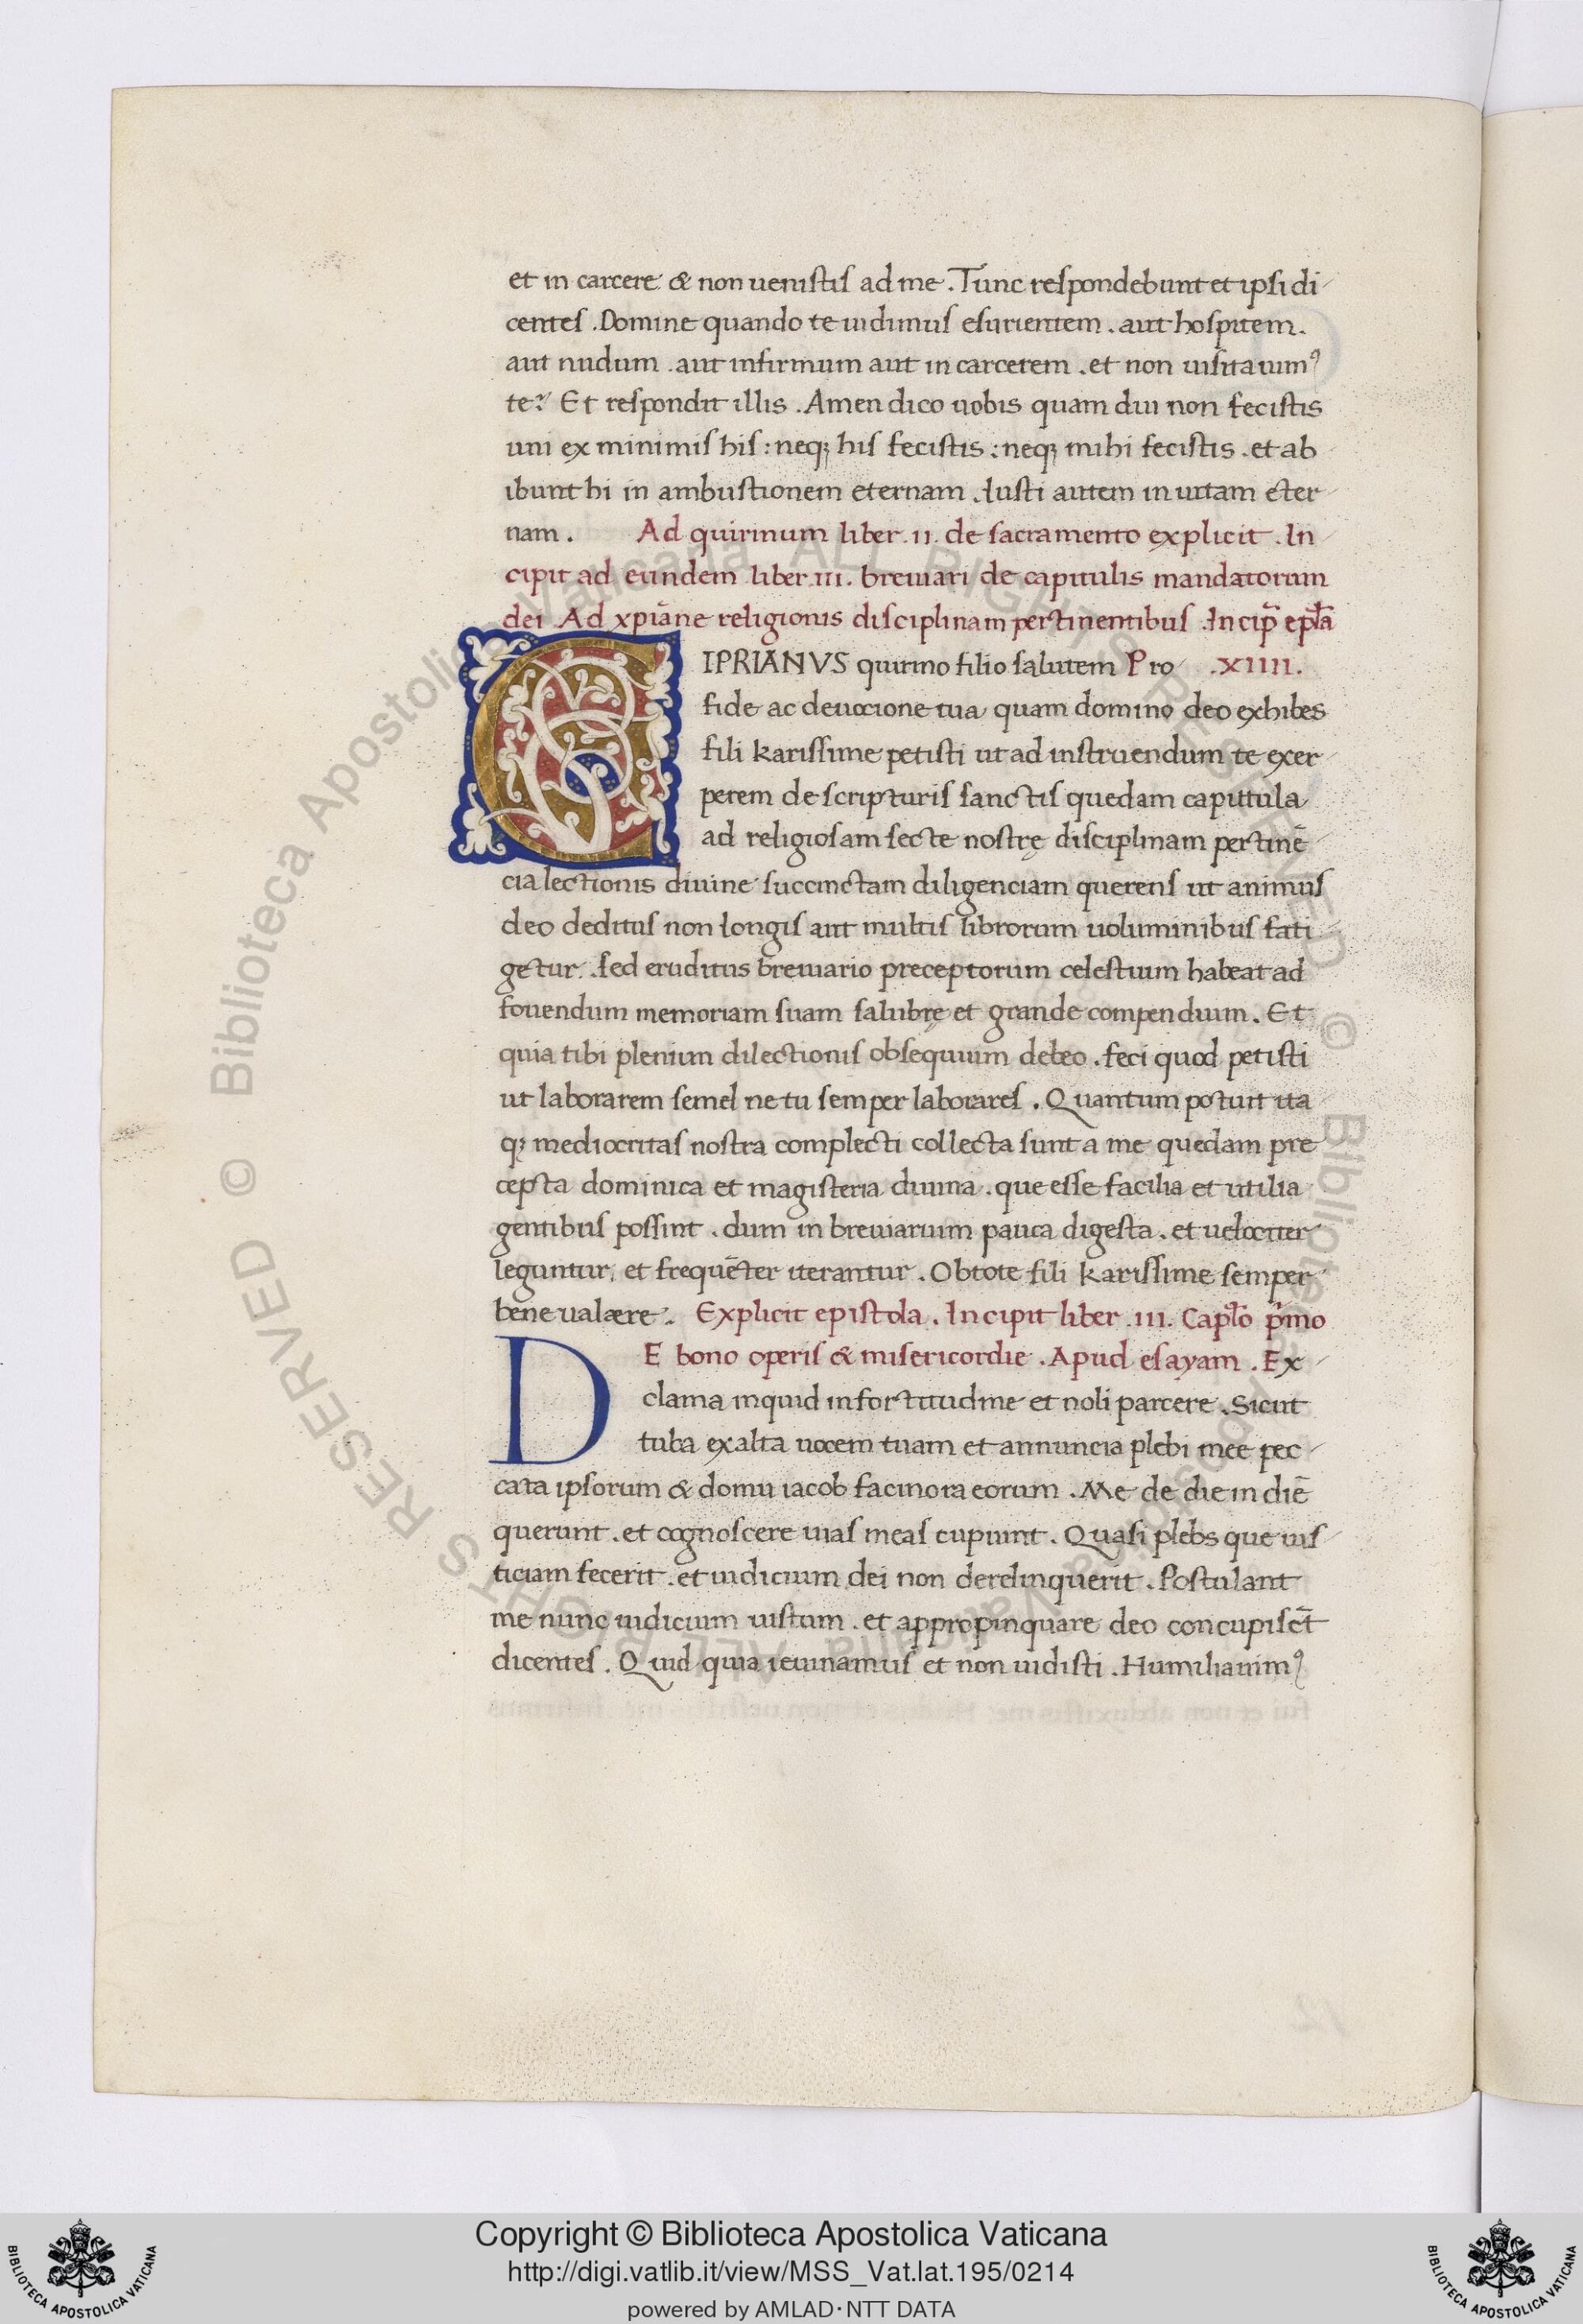 et in carcere & non uenistis ad me . Tunc respondebunt et ipsi di
centes . Domine quando te uidimus esurientem . aut hospitem .
aut nudum . aut infirmum aut in carcerem . et non uisitauimꝰ
te? Et respondit illis . Amen dico uobis quam diu non fecistis
uni ex minimis his : neqꝫ his fecistis : neqꝫ mihi fecistis . et ab
ibunt hi in ambustionem eternam . Iusti autem in uitam eter
nam . Ad quirinum liber . II . de sacramento explicit . In
cipit ad eundem liber . III . breuiari de capitulis mandatorum
dei . Ad xpiāne religionis disciplinam pertinentibus . Incip̄ epl̄a
CIPRIANVS quirino filio salutem Pro . XIIII .
fide ac deuocione tua quam domino deo exhibes
fili karissime petisti ut ad instruendum te exer
perem de scripturis sanctis quedam capitula
ad religiosam secte nostrę disciplinam pertinē
cia lectionis diuine succinctam diligenciam querens ut animus
deo deditus non longis aut multis librorum uoluminibus fati
getur . sed eruditus breuiario preceptorum celestium habeat ad
fouendum memoriam suam salubrę et grande compendium . Et
quia tibi plenium dilectionis obsequium debeo . feci quod petisti
ut laborarem semel ne tu semper laborares . Quantum potuit ita
qꝫ mediocritas nostra complecti collecta sunt a me quedam pre
cepta dominica et magisteria diuina . que esse facilia et utilia
gentibus possint . dum in breuiarium pauca digesta . et uelociter
leguntur, et frequēter iterantur . Obtote fili karissime semper
bene ualære . Explicit epistola . Incipit liber . III . Capl̄o p̄mo
DE bono operis & misericordie . Apud esayam . Ex
clama inquid in fortitudine et noli parcere . Sicut
tuba exalta uocem tuam et annuncia plebi mee pec
cata ipsorum & domu iacob facinora eorum . Me de die in diē
querunt . et cognoscere uias meas cupiunt . Quasi plebs que ius
ticiam fecerit . et iudicium dei non derelinquerit . Postulant
me nunc iudicium iustum . et appropinquare deo concupiscēt
dicentes . Quid quia ieiunamus et non uidisti . Humiliauimꝰ
© Biblioteca Apostolica Vaticana ALL RIGHTS RESERVED
© Biblioteca Apostolica Vaticana ALL RIGHTS RESERVED
Copyright © Biblioteca Apostolica Vaticana
http://digi.vatlib.it/view/MSS_Vat.lat.195/0214
powered by AMLAD·NTT DATA
BIBLIOTECA APOSTOLICA VATICANA
BIBLIOTECA APOSTOLICA VATICANA